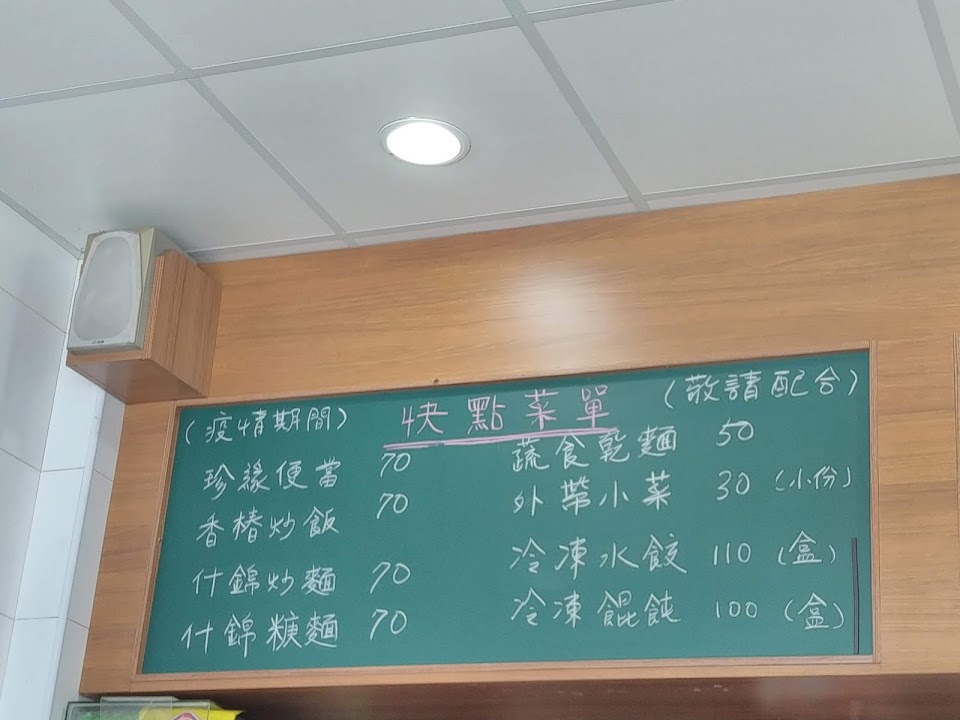 (疫情期間) 快點菜單 (敬請配合)
珍緣便當 70
香椿炒飯 70
什錦炒麵 70
什錦糖麵 70
蔬食乾麵 50
外帶小菜 30 (小份)
冷凍水餃 110 (盒)
冷凍餛飩 100 (盒)